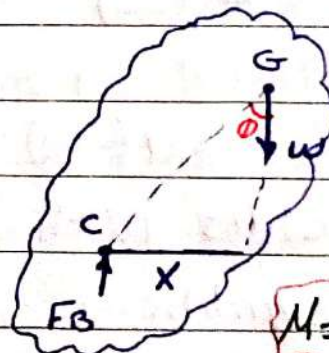 G
θ
w
C
X
FB
M=